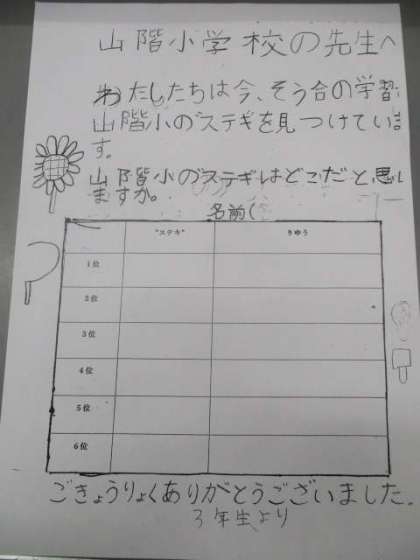 山階小学校の先生へ
わたしたちは今、そう合の学習
山階小の"ステキを見つけていま
す。
山階小の"ステキはどこだと思い
ますか。
名前(
"ステキ" りゆう
1位
2位
3位
4位
5位
6位
ごきょうりょくありがとうございました。
3年生より